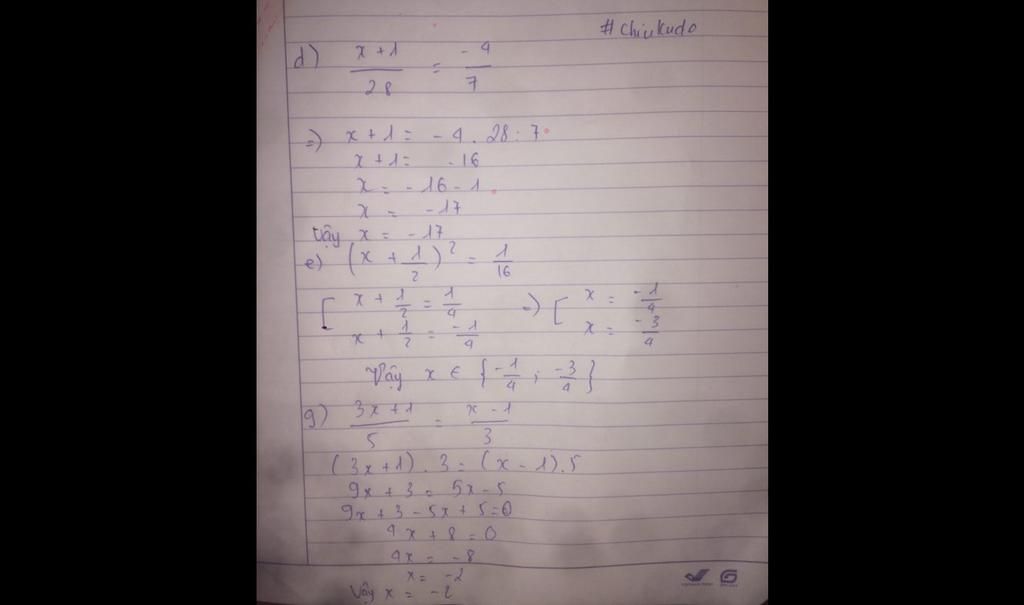 #chiukudo
d) \frac{x+1}{28} = \frac{-4}{7}
=) x+1 = -4.28:7
x+1 = -16
x = -16-1
x = -17
Vậy x = -17
e) (x + \frac{1}{2})^2 = \frac{1}{16}
[ x + \frac{1}{2} = \frac{1}{4} =) [ x = \frac{-1}{4}
x + \frac{1}{2} = \frac{-1}{4} x = \frac{-3}{4}
Vậy x ∈ {\frac{-1}{4} ; \frac{-3}{4}}
g) \frac{3x+1}{5} = \frac{x-1}{3}
(3x+1).3 = (x-1).5
9x + 3 = 5x-5
9x + 3 - 5x + 5 = 0
4x + 8 = 0
4x = -8
x = -2
Vậy x = -2